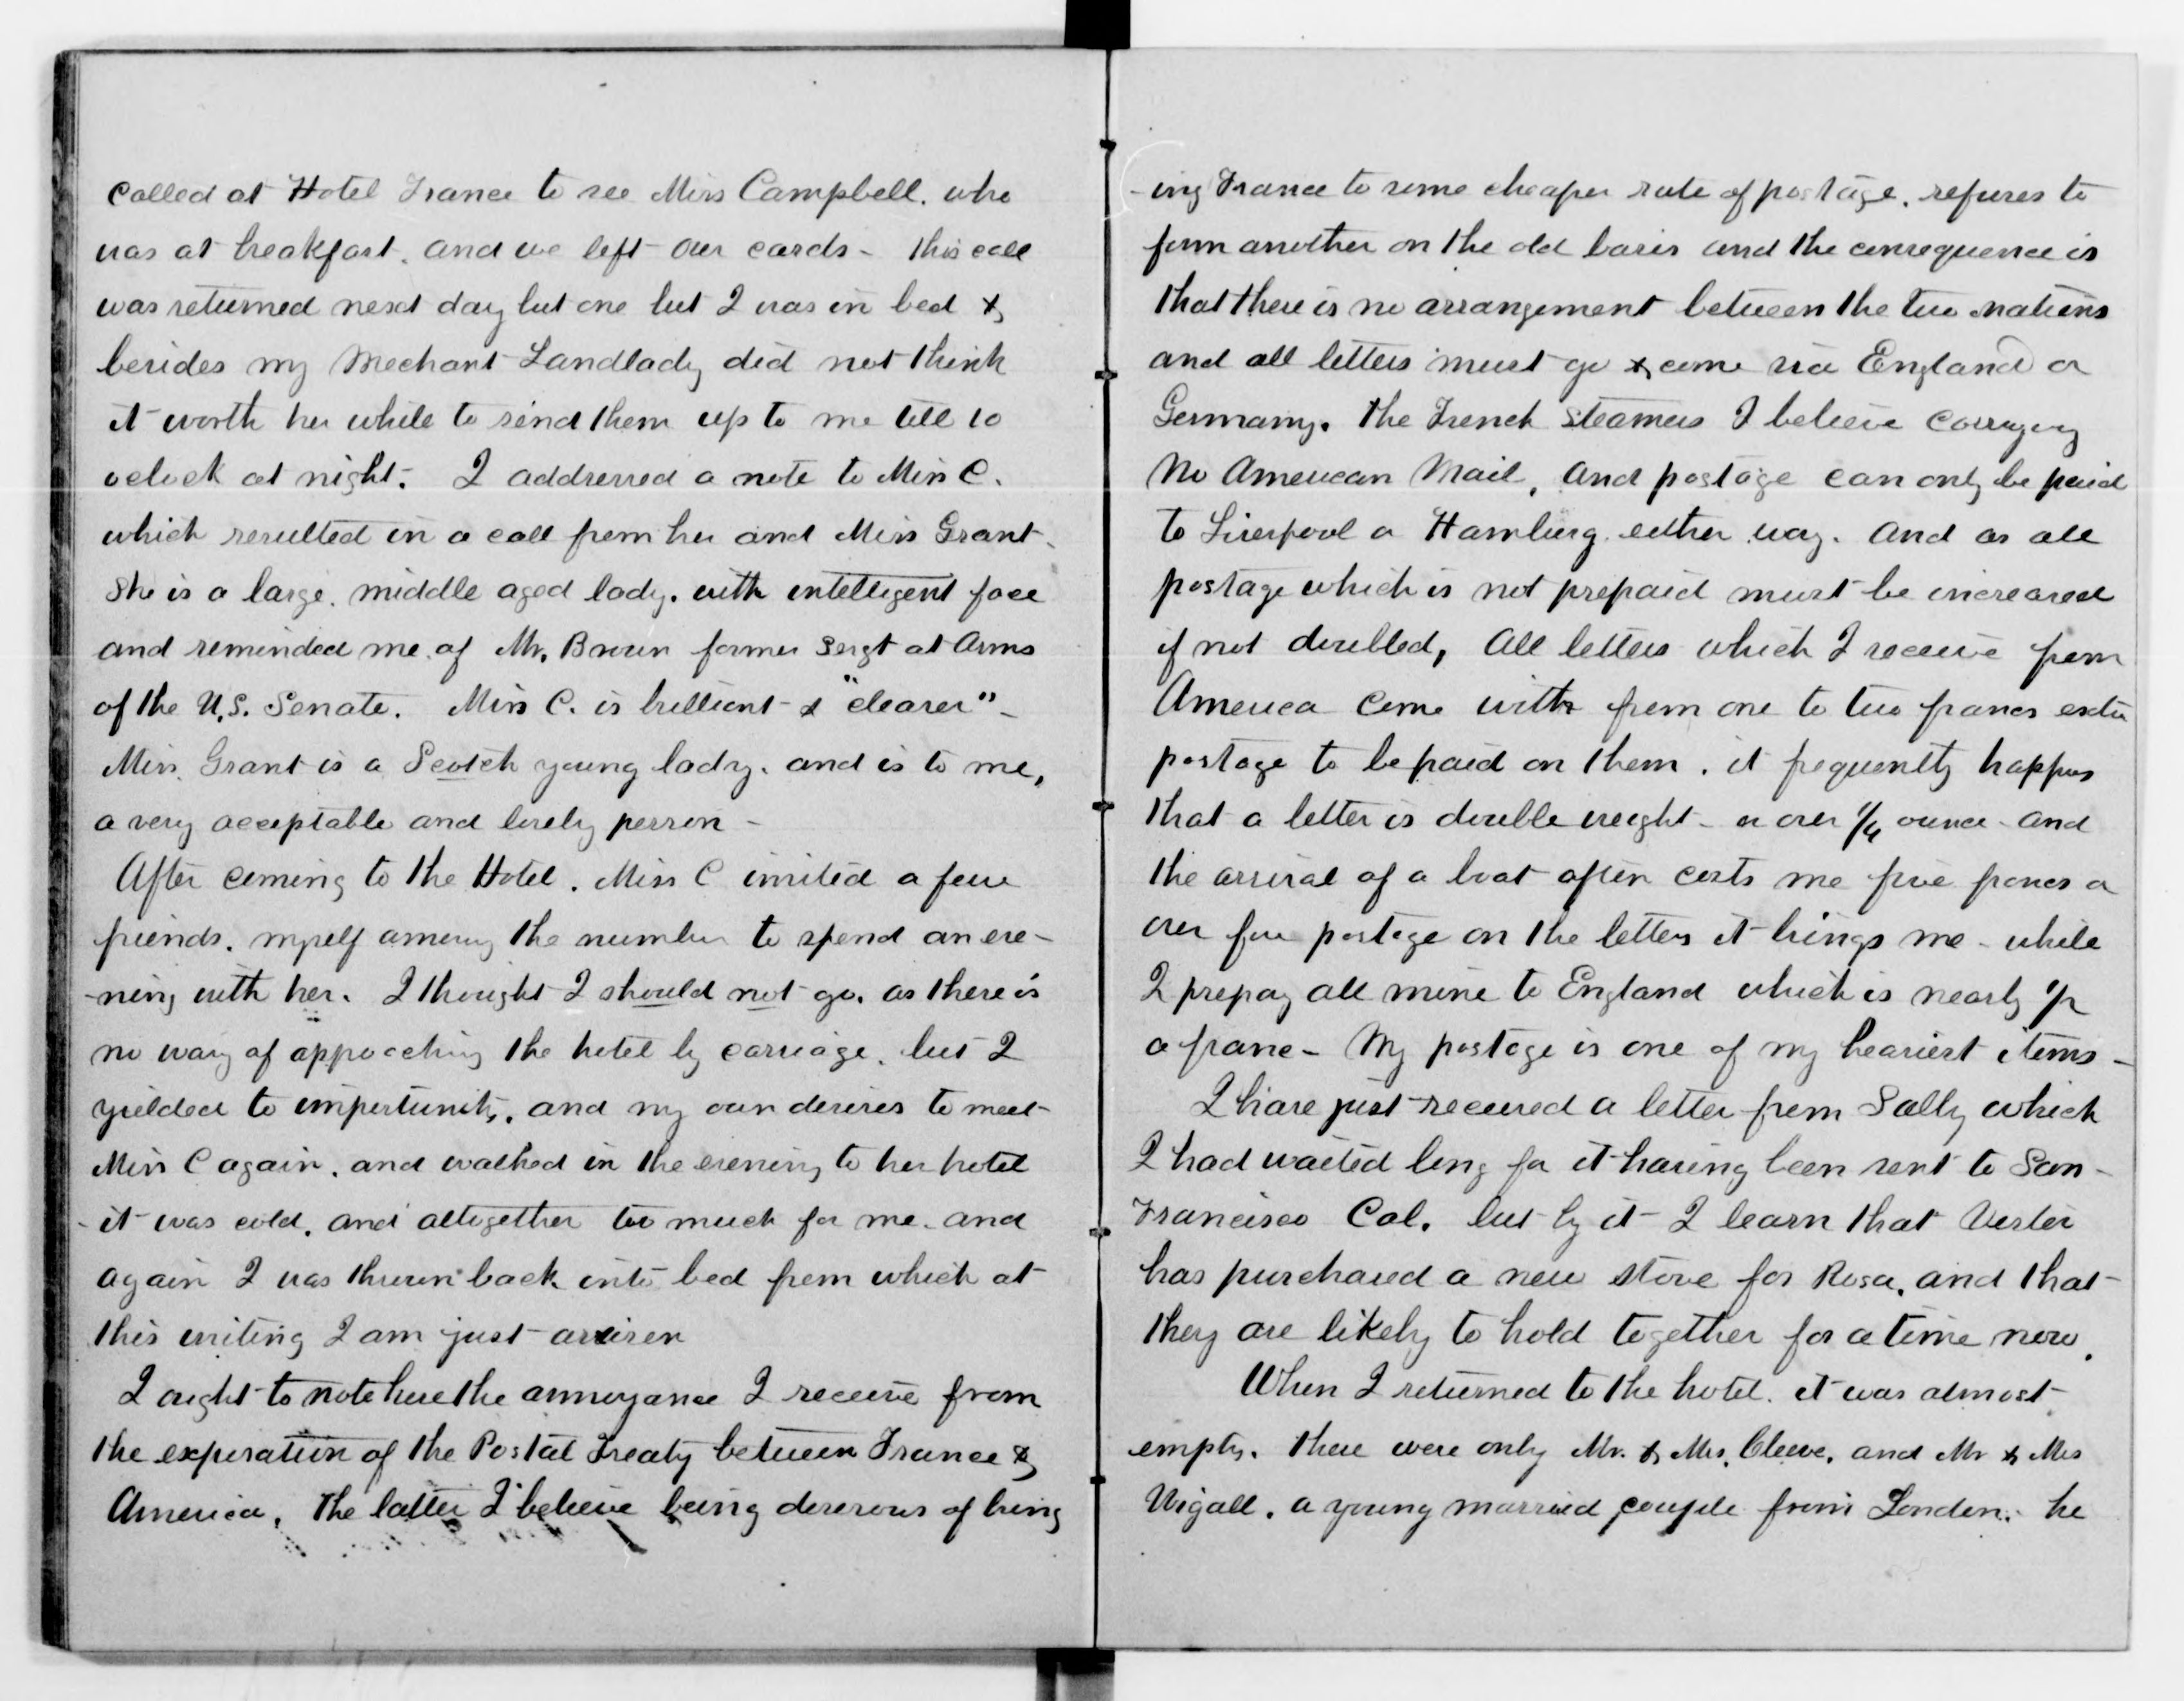 called at Hotel France to see Miss Campbell. who
was at breakfast. and we left our cards - this call
was returned next day but one but I was in bed &
besides my Mechant Landlady did not think
it worth her while to send them up to me till 10
oclock at night. I addressed a note to Miss C.
which resulted in a call from her and Miss Grant.
She is a large. middle aged lady. with intelligent face
and reminded me of Mr. Brown former Sergt at Arms
of the U.S. Senate. Miss C. is brilliant & "clever" -
Miss Grant is a Scotch young lady. and is to me,
a very acceptable and lovely person -
After coming to the Hotel. Miss C invited a few
friends. myself among the number to spend an eve-
-ning with her. I thought I should not go. as there is
no way of approaching the hotel by carriage. but I
yielded to importunity. and my own desires to meet
Miss C again. and walked in the evening to her hotel
- it was cold. and altogether too much for me. and
again I was thrown back into bed from which at
this writing I am just arisen
I ought to note here the annoyance I receive from
the experation of the Postal Treaty between France &
America. The latter I believe being deserous of bring
-ing France to some cheaper rate of postage. refuses to
form another on the old basis and the consequence is
that there is no arrangement between the two nations
and all letters must go & come via England or
Germany. The French Steamers I believe carrying
No American Mail, and postage can only be paid
to Liverpool or Hamburg either way. And as all
postage which is not prepaid must be increased
if not doubled, All letters which I receive from
America come with from one to two francs extra
postage to be paid on them. it frequently happens
that a letter is double weight - or over 1/4 ounce - and
the arrival of a boat often costs me five francs or
over for postage on the letters it brings me - while
I prepay all mine to England which is nearly 1/2
a franc - My postage is one of my heaviest items -
I have just received a letter from Sally which
I had waited long for it having been sent to San -
Francisco Cal. but by it I learn that Vester
has purchased a new stove for Rosa. and that
they are likely to hold together for a time now.
When I returned to the hotel. it was almost
empty. there were only Mr. & Mrs. Cleeve. and Mr & Mrs
Wigall. a young married couple from London. he